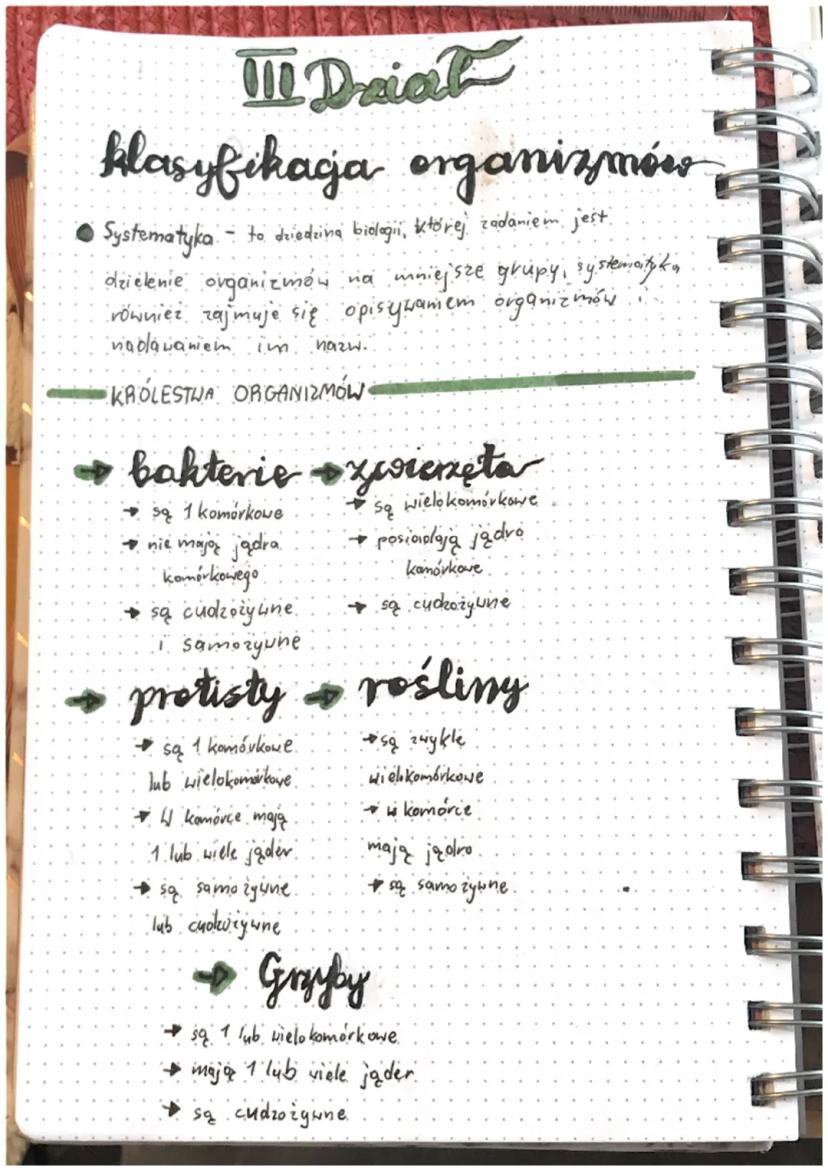 III Dział
klasyfikacja organizmów
Systematyka - to dziedzina biologii, której zadaniem jest
dzielenie organizmów na mniejsze grupy, systematyka
również zajmuje się opisywaniem organizmów i
nadawaniem im nazw.
KRÓLESTWA ORGANIZMÓW
→ bakterie
→ są 1 komórkowe
→ nie mają jądra
komórkowego
→ są cudzożywne
i samożywne
→ zwierzęta
→ są wielokomórkowe
→ posiadają jądro
komórkowe
→ są cudzożywne
→ protisty
→ są 1 komórkowe
lub wielokomórkowe
→ W komórce mają
1 lub wiele jąder
→ są samożywne
lub cudzożywne
→ rośliny
→ są zwykle
wielokomórkowe
→ w komórce
mają jądro
→ są samożywne
→ Grzyby
→ są 1 lub wielokomórkowe
→ mają 1 lub wiele jąder
→ są cudzożywne